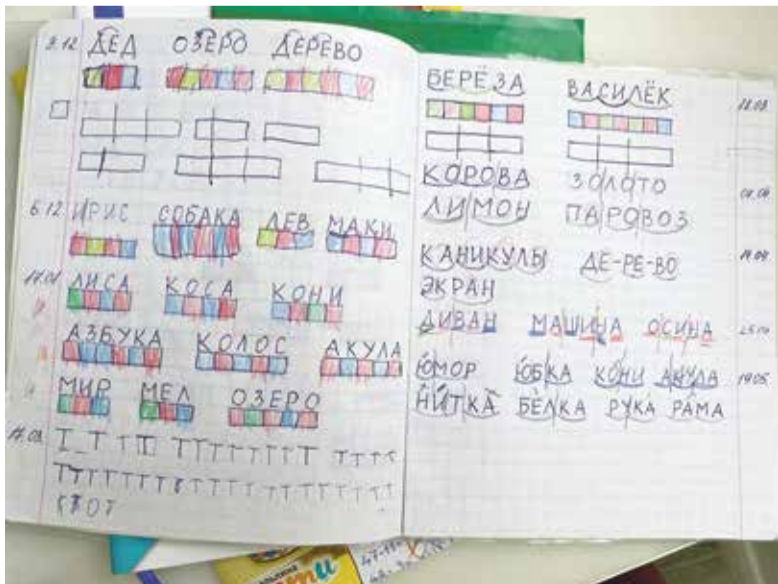 9.12 ДЕД ОЗЕРО ДЕРЕВО
6.12 ИРИС СОБАКА ЛЕВ МАКИ
17.01 ЛИСА КОСА КОНИ
АЗБУКА КОЛОС АКУЛА
МИР МЕЛ ОЗЕРО
17.03. Т Т Т Т Т Т Т Т Т Т Т Т Т Т Т Т
Т Т Т Т Т Т Т Т Т Т Т Т Т Т Т Т Т Т Т Т
КТОТ
БЕРЁЗА ВАСИЛЁК
КОРОВА ЗОЛОТО
ЛИМОН ПАРОВОЗ
КАНИКУЛЫ ДЕ-РЕ-ВО
ЭКРАН
ДИВАН МАШИНА ОСИНА
ЮМОР ЮБКА КОНИ АКУЛА 19.05.
НИТКА БЕЛКА РУКА РАМА
47-18=